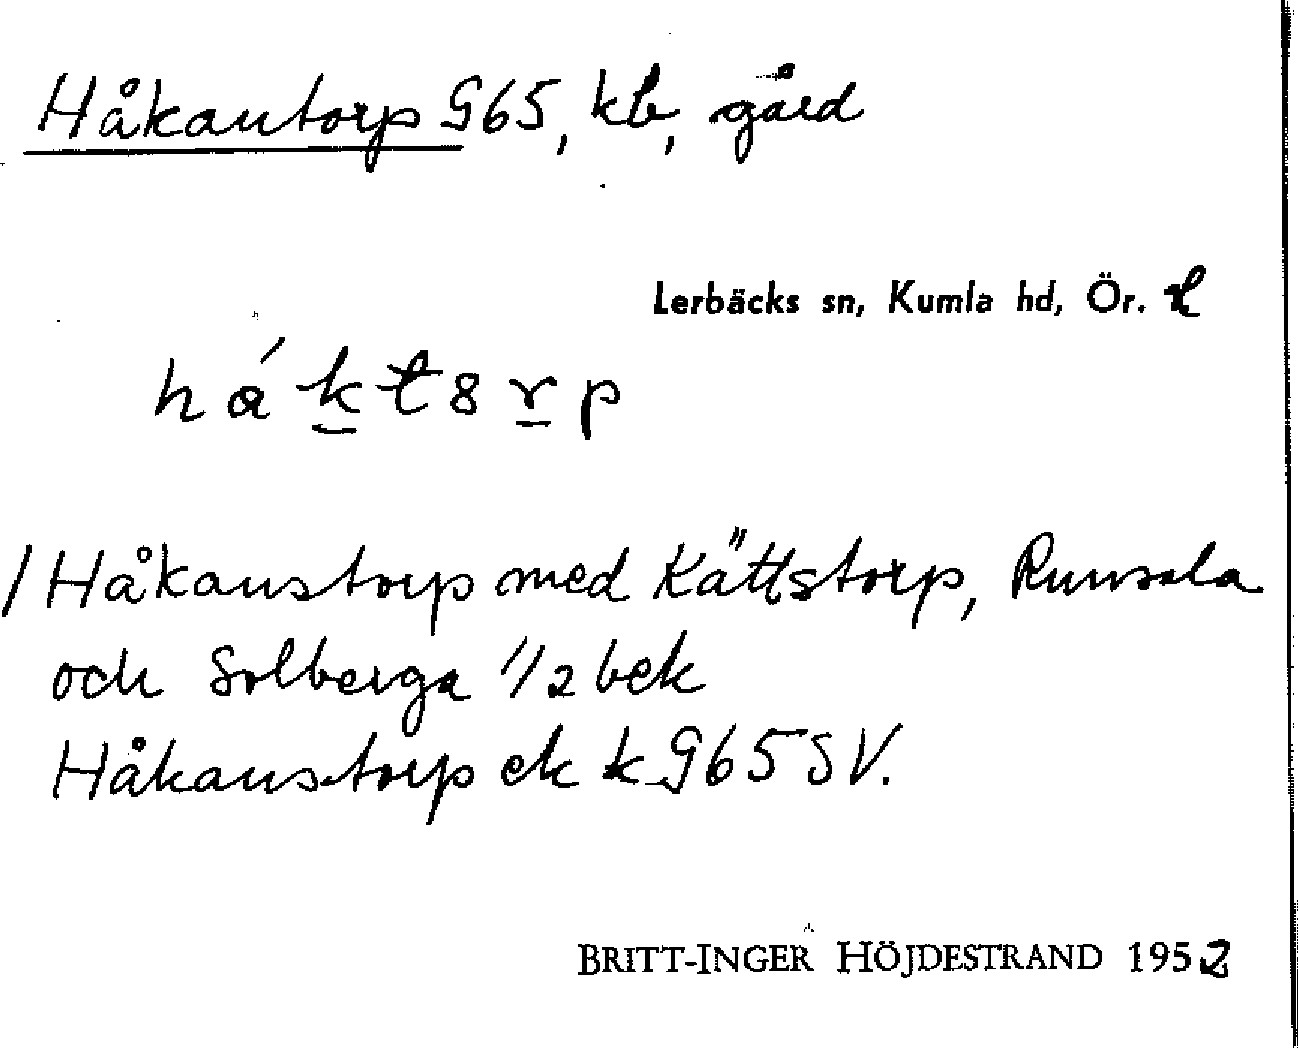 Håkantorp G65, kb, gård
Lerbäcks sn, Kumla hd, Ör. l
hákt8rp
/ Håkanstorp med Kättstorp, Runsala
och Solberga 1/2 bek
Håkanstorp ek k G65 SV.
BRITT-INGER HÖJDESTRAND 1952